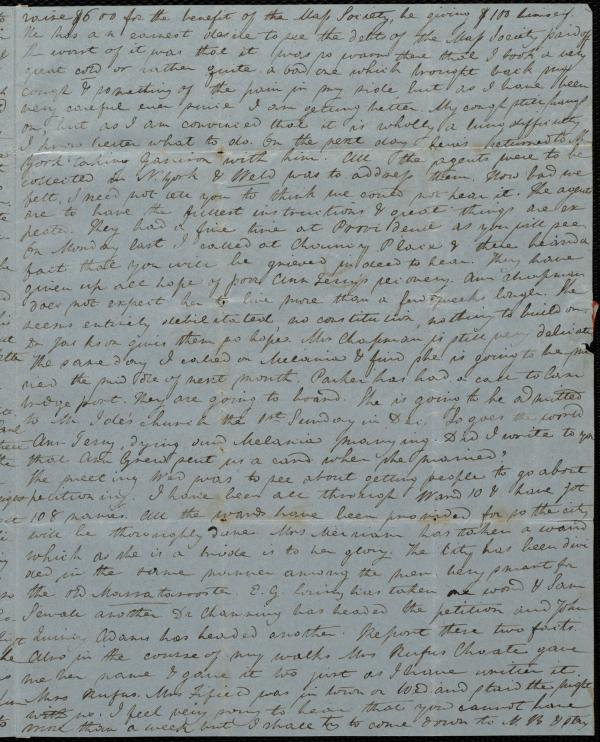 raise $600 for the benefit of the Mass Society, he giving $100 himself.
He has an earnest desire to see the debts of the Mass Society paid off
The worst of it was that it was so warm there that I took a very
great cold or rather quite a bad one which brought back my
cough & something of the pain in my side but as I have been
very careful ever since I am getting better. My cough still hangs
on, but as I am convinced that it is wholly a lung difficulty
I know better what to do. On the next day returned to N
York taking Garrison with him. All the agents were to be
collected in N York & Weld was to address them. How bad we
felt, I need not tell you to think we could not hear it. The agents
are to have the fullest instructions & great things are ex
pected. They had a fine time at Providence as you will see.
On Monday last I called at Chauncy Place & there heard a
fact that you will be grieved indeed to hear. They have
given up all hope of poor Ann Terry's recovery. Ann Chapman
does not expect her to live more than a few weeks longer. She
seems entirely debilitated, no constitution, nothing to build on.
Dr Jackson gives them no hope. Mrs Chapman is still very delicate
The same day I called on Melania & find she is going to be mar
ried the middle of next month. Parker has had a call to Cam
bridge port. They are going to board. She is going to be admitted
to Mr Ide's church the 1st Sunday in Dec. So goes the world
Ann Terry, dying and Melania marrying. Did I write to you
that Ann Green sent us a card when she married?
The meeting Wed was to see about getting people to go about
petitioning. I have been all through Ward 10 & have got
108 names. All the wards have been provided for so the city
will be thoroughly done. Mrs Merriam has taken a ward
which as she is a bride is to her glory. The City has been divi
ded in the same manner among the men. Very smart for
the old E. G. Loring has taken one ward & Sam
Sewall another Dr Channing has headed the petition and John
Quincy Adams has headed another. Report these two facts.
Also in the course of my walks Mrs Rufus Choate gave
me her name & gave it too just as I have written it
Mrs Rufus. Mrs Fifield was in town on Wed and staid the night
with us. I feel very sorry to hear that you cannot have
more than a week but I shall to come down to N B & stay